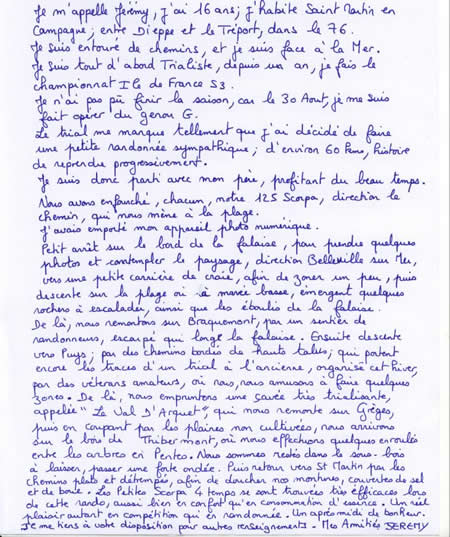 Je m'appelle Jérémy, j'ai 16 ans; j'habite Saint Martin en
Campagne; entre Dieppe et le Tréport, dans le 76.
Je suis entouré de chemins, et je suis face à la Mer.
Je suis tout d'abord Trialiste, depuis un an, je fais le
championnat Ile de France S3.
Je n'ai pas pû finir la saison, car le 30 Aout, je me suis
fait opérer du genou G.
Le trial me manque tellement que j'ai décidé de faire
une petite randonnée sympathique; d'environ 60 Kms, histoire
de reprendre progressivement.
Je suis donc parti avec mon père, profitant du beau temps.
Nous avons enfourché, chacun, notre 125 Scorpa, direction le
chemin, qui nous mène à la plage.
J'avais emporté mon appareil photo numérique.
Petit arrêt sur le bord de la falaise, pour prendre quelques
photos et contempler le paysage, direction Belleville sur Mer,
vers une petite carrière de craie, afin de zoner un peu, puis
descente sur la plage où à marée basse, émergent quelques
rochers à escalader, ainsi que les éboulis de la falaise.
De là, nous remontons sur Braquemont, par un sentier de
randonneurs, escarpé qui longe la falaise. Ensuite descente
vers Puys; par des chemins bordés de hauts talus; qui portent
encore les traces d'un trial à l'ancienne, organisé cet hiver,
par des vétérans amateurs, où nous, nous amusons à faire quelques
zones. De là, nous empruntons une cavée très trialisante,
appelée "Le Val D'Arquet", qui nous remonte sur Grèges,
puis en coupant par les plaines non cultivées, nous arrivons
sur le bois de Thibermont, où nous effectuons quelques enroulés
entre les arbres en Pentes. Nous sommes restés dans le sous-bois
à laisser, passer une forte ondée. Puis retour vers St Martin par les
chemins plats et détrempés, afin de doucher nos montures, couvertes de sel
et de boue. Les Petites Scorpa 4 temps se sont trouvées très éfficaces lors
de cette rando, aussi bien en confort qu'en consommation d'essence. Un réel
plaisir autant en compétition qu'en randonnée. Un après midi de bonheur.
Je me tiens à votre disposition pour autres renseignements. Mes Amitiés JEREMY